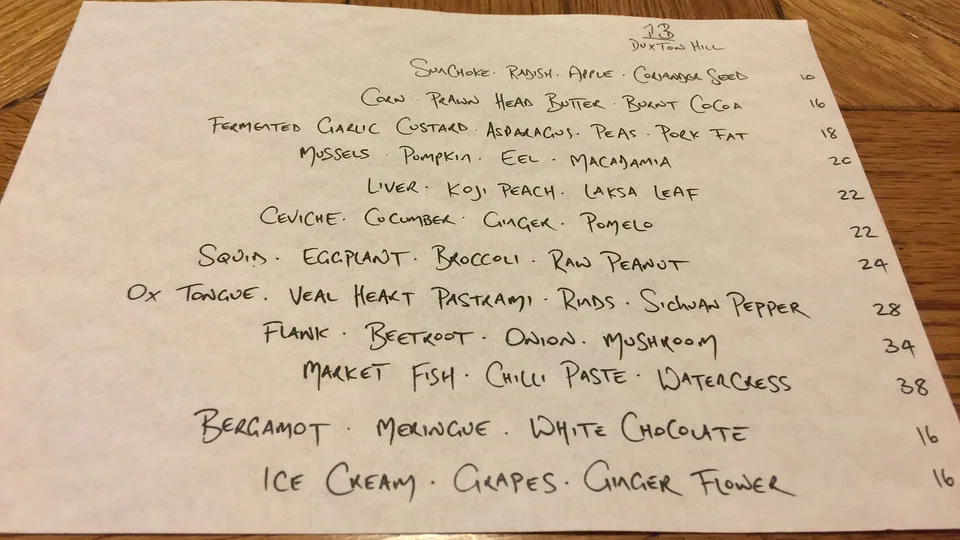 13
DUXTON HILL
SUNCHOKE · RADISH · APPLE · CORIANDER SEED 10
CORN · PRAWN HEAD BUTTER · BURNT COCOA 16
FERMENTED GARLIC CUSTARD · ASPARAGUS · PEAS · PORK FAT 18
MUSSELS · PUMPKIN · EEL · MACADAMIA 20
LIVER · KOJI PEACH · LAKSA LEAF 22
CEVICHE · CUCUMBER · GINGER · POMELO 22
SQUID · EGGPLANT · BROCCOLI · RAW PEANUT 24
OX TONGUE · VEAL HEART PASTRAMI · RINDS · SICHUAN PEPPER 28
FLANK · BEETROOT · ONION · MUSHROOM 34
MARKET FISH · CHILLI PASTE · WATERCRESS 38
BERGAMOT · MERINGUE · WHITE CHOCOLATE 16
ICE CREAM · GRAPES · GINGER FLOWER 16